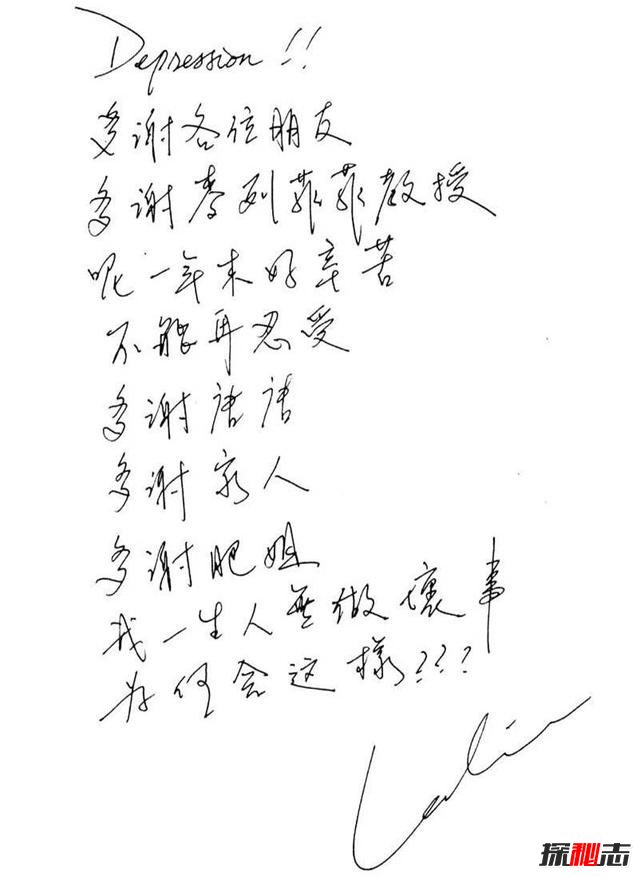 Depression !!
多谢各位朋友
多谢麦列菲菲教授
呢一年来好辛苦
不能再忍受
多谢唐唐
多谢家人
多谢肥姐
我一生人無做壞事
为何会这樣???
Leslie
探秘志